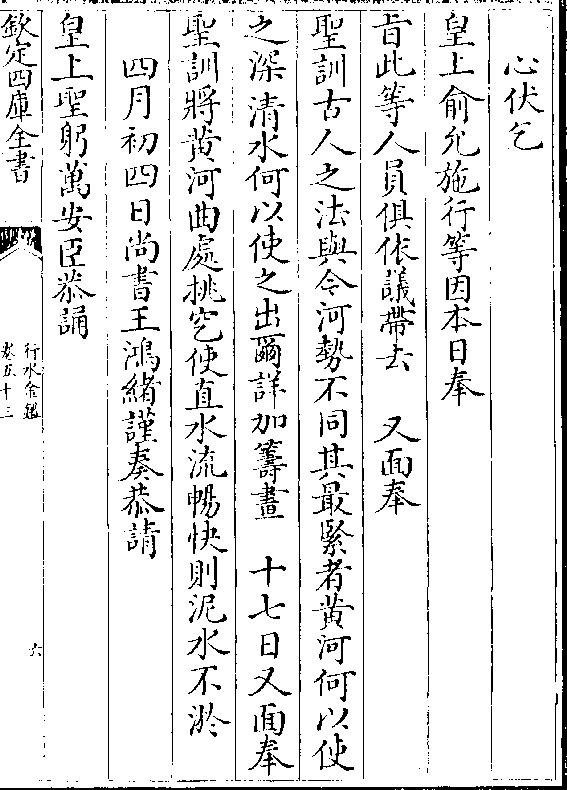 心伏乞
皇上俞允施行等因本日奉
㫖此等人員俱依議帶去　又面奉
聖訓古人之法與今河勢不同其最緊者黄河何以使
之深清水何以使之出爾詳加籌畫　十七日又面奉
聖訓將黄河曲處挑空使直水流暢快則泥水不淤
四月初四日尚書王鴻緒謹奏恭請
皇上聖躬萬安臣恭誦
欽定四庫全書
行水金鑑
卷五十三
六